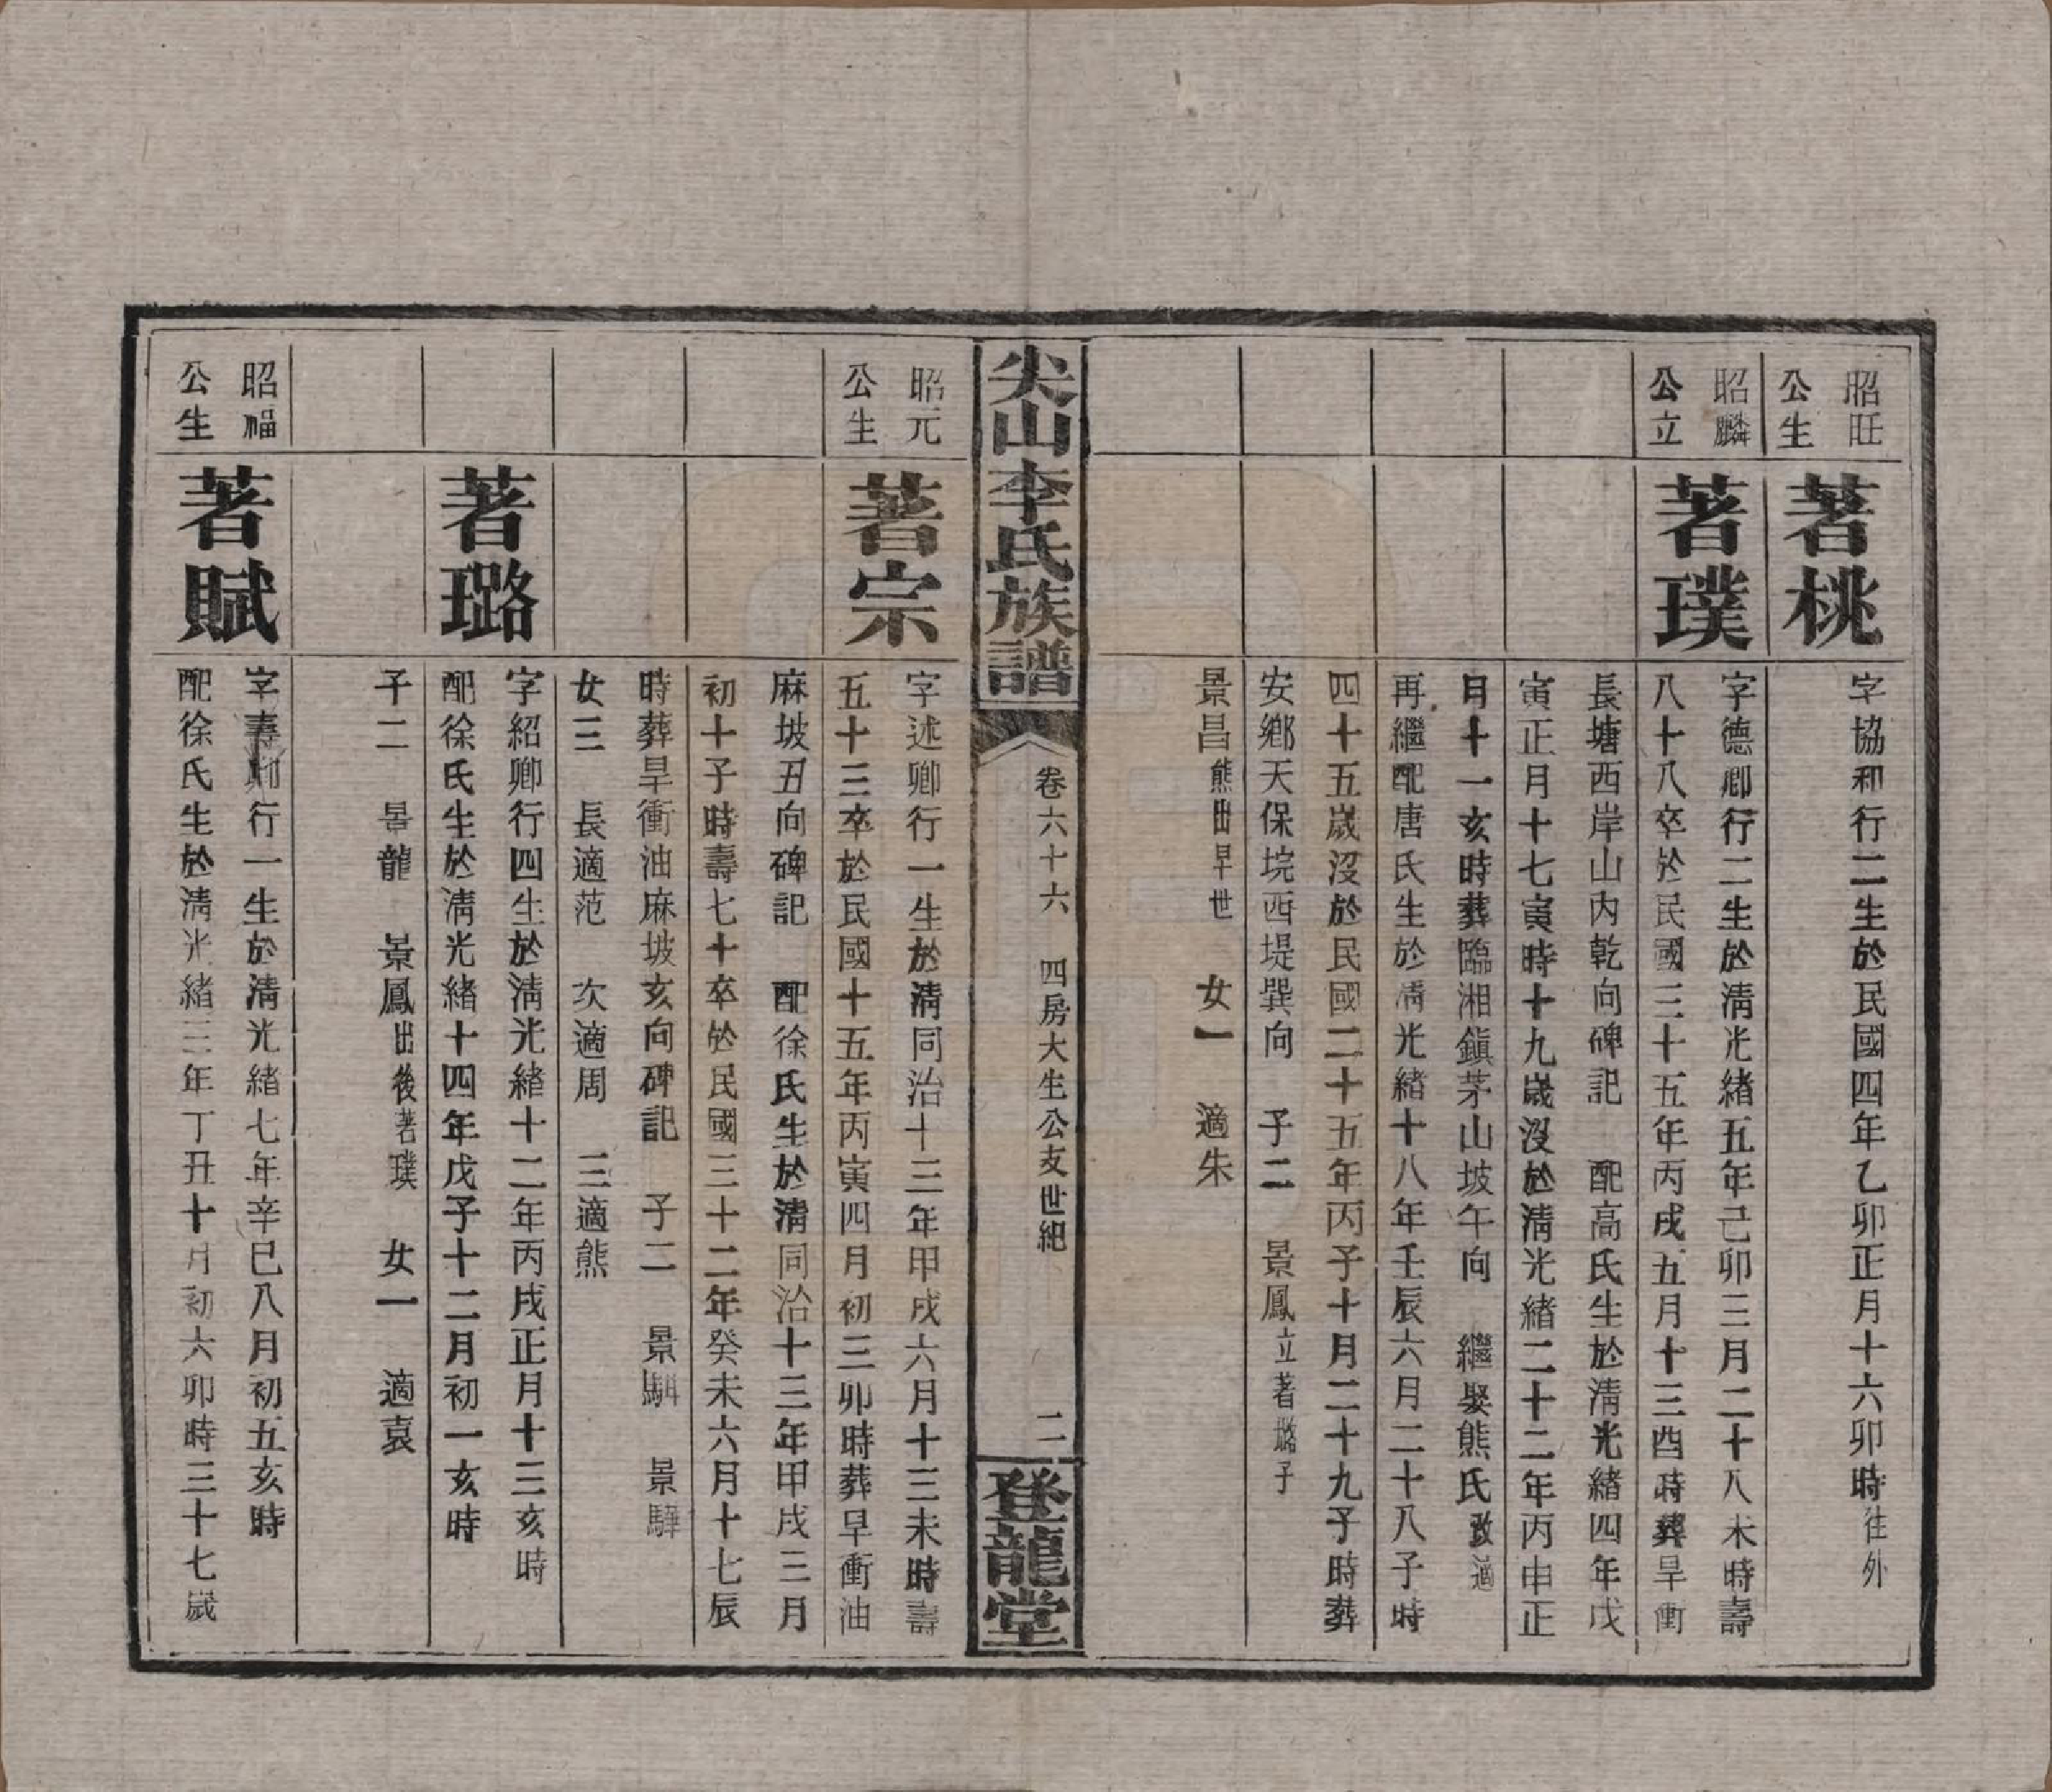 昭旺
公生
著桃
字協和行二生於民國四年乙卯正月十六卯時往外
昭麟
公立
著璞
字德卿行二生於清光緒五年己卯三月二十八未時壽
八十八卒於民國三十五年丙戌五月十三酉時葬旱衝
長塘西岸山內乾向碑記 配高氏生於清光緒四年戊
寅正月十七寅時十九歲沒於清光緒二十二年丙申正
月十一亥時葬臨湘鎮茅山坡午向 繼娶熊氏改適
再繼配唐氏生於清光緒十八年壬辰六月二十八子時
四十五歲沒於民國二十五年丙子十月二十九子時葬
安鄉天保垸西堤巽向 子二 景鳳立著璐子
景昌熊出早世 女一 適朱
尖山李氏族譜
卷六十六 四房大生公支世紀 二
登龍堂
昭元
公生
著宗
字述卿行一生於清同治十三年甲戌六月十三未時壽
五十三卒於民國十五年丙寅四月初三卯時葬旱衝油
麻坡丑向碑記 配徐氏生於清同治十三年甲戌三月
初十子時壽七十卒於民國三十二年癸未六月十七辰
時葬旱衝油麻坡亥向碑記 子二 景騆 景驊
女三 長適范 次適周 三適熊
著璐
字紹卿行四生於清光緒十二年丙戌正月十三亥時
配徐氏生於清光緒十四年戊子十二月初一亥時
子二 景龍 景鳳出後著璞 女一 適袁
昭福
公生
著賦
字壽卿行一生於清光緒七年辛巳八月初五亥時
配徐氏生於清光緒三年丁丑十月初六卯時三十七歲